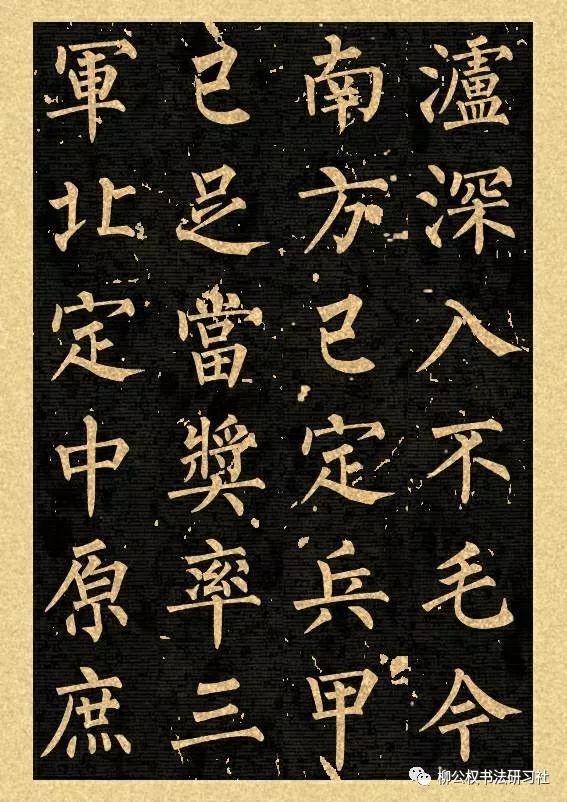 瀘深入不毛今
南方已定兵甲
已足當獎率三
軍北定中原庶
柳公权书法研习社